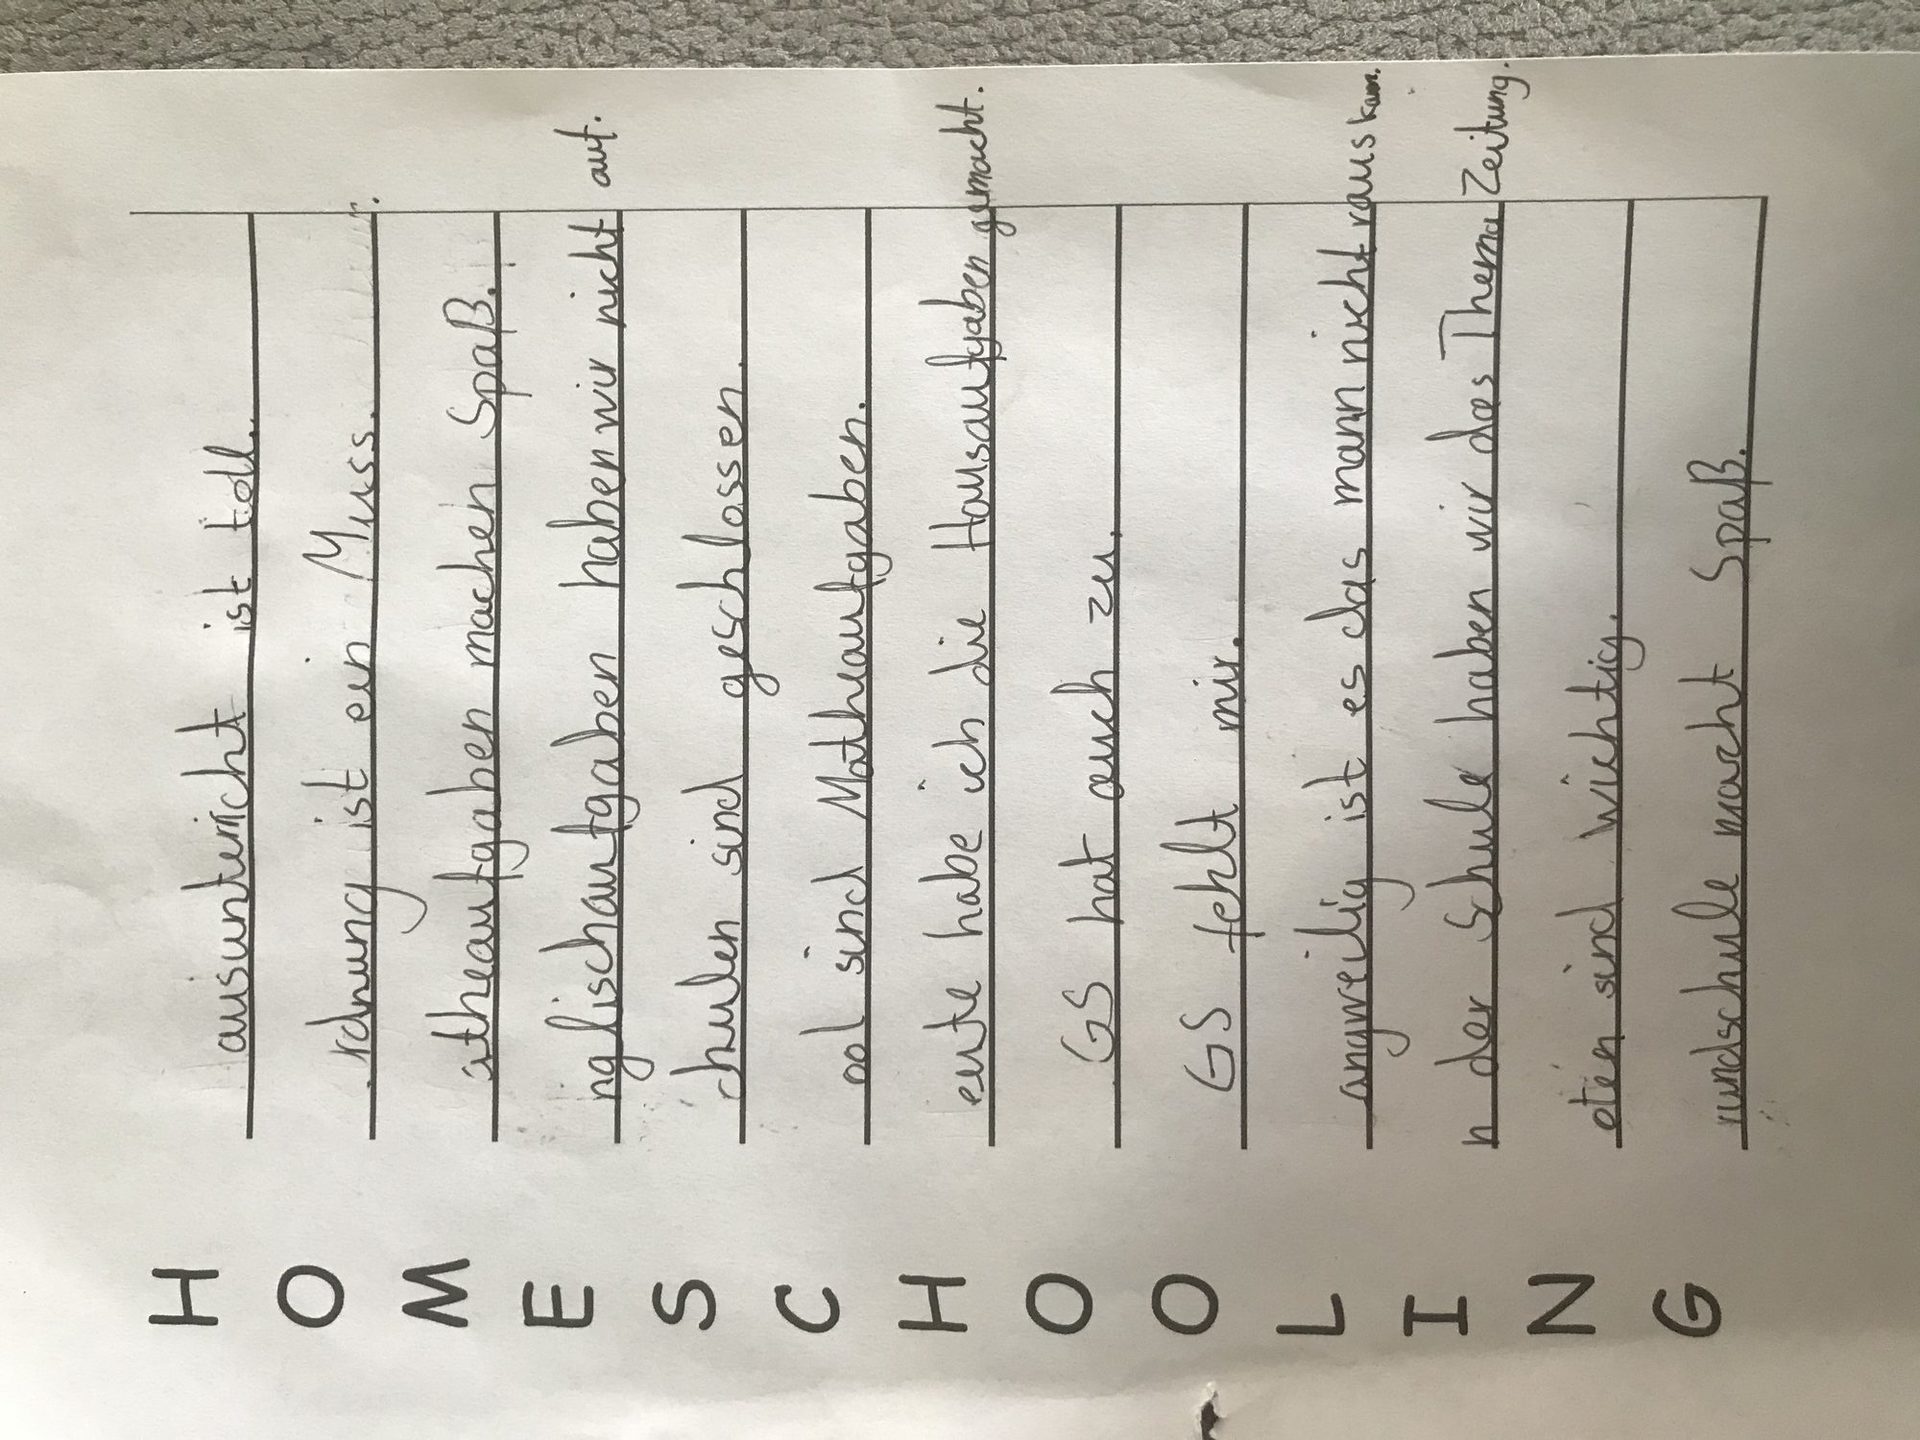 H ausunterricht ist toll.
O rdnung ist ein Muss.
M atheaufgaben machen Spaß.
E nglischaufgaben haben wir nicht auf.
S chulen sind geschlossen.
C ool sind Matheaufgaben.
H eute habe ich die Hausaufgaben gemacht.
O GS hat auch zu.
O GS fehlt mir.
L angweilig ist es das mann nicht raus kam.
I n der Schule haben wir das Thema Zeitung.
N oten sind wichtig.
G rundschule macht Spaß.